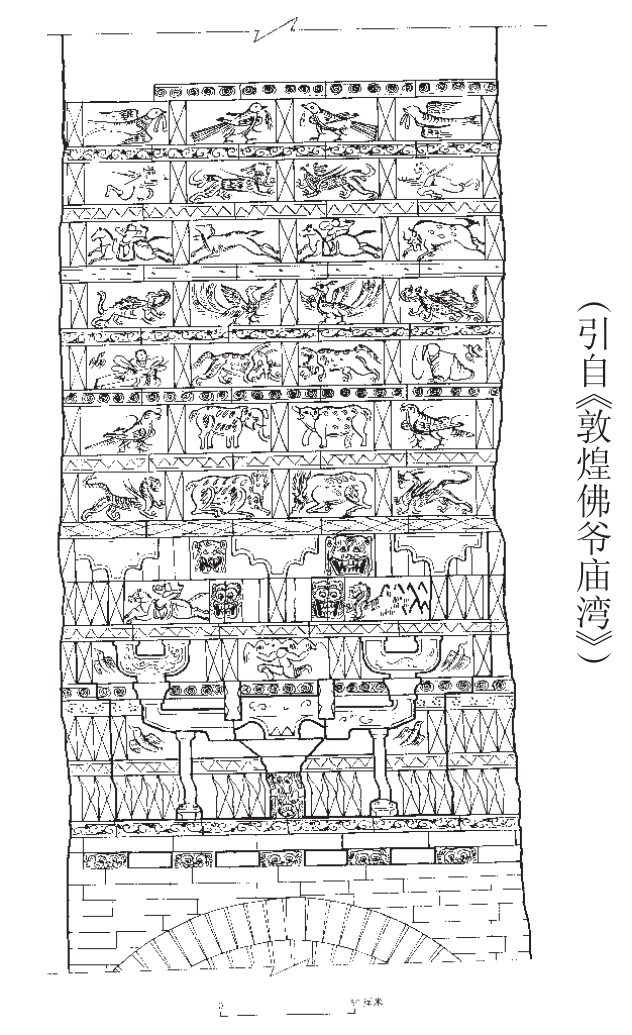 （引自《敦煌佛爷庙湾》）
0
厘米